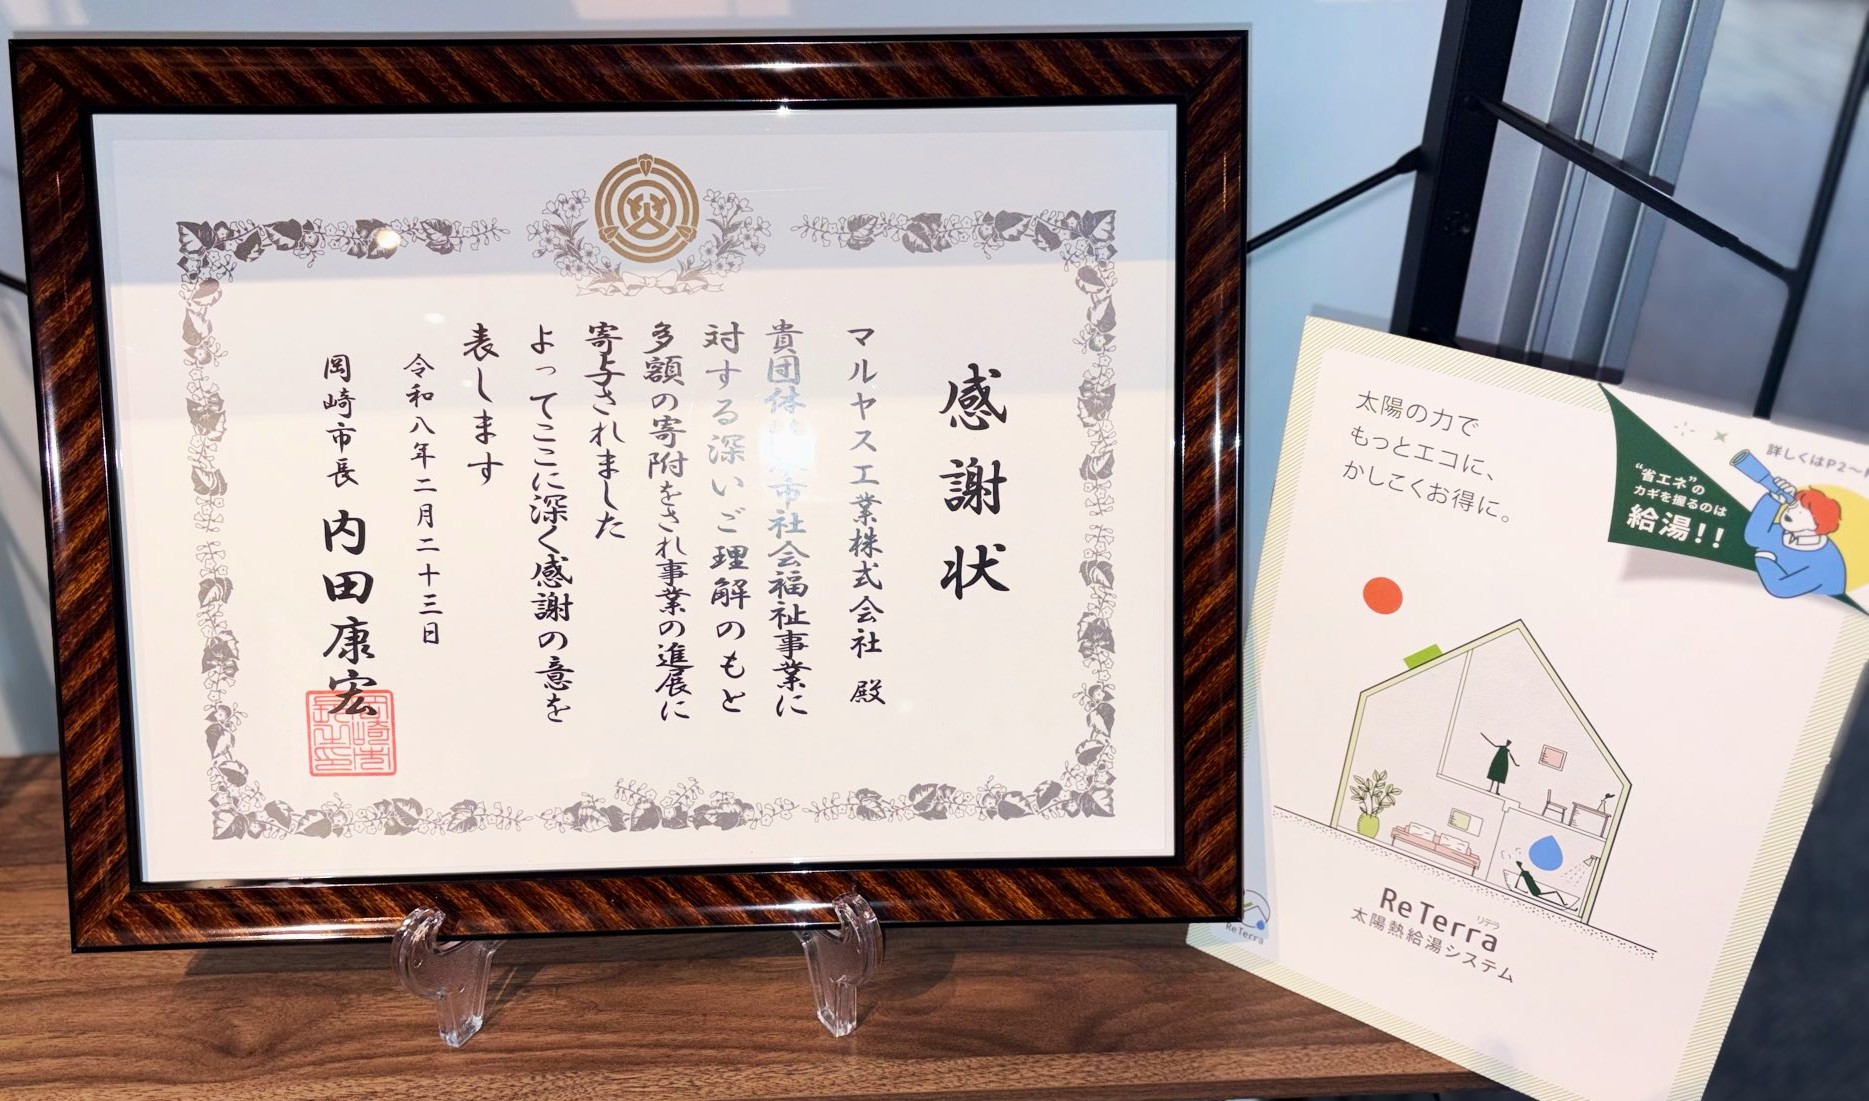 感謝状
マルヤス工業株式会社 殿
貴団体 市社会福祉事業に
対する深いご理解のもと
多額の寄附をされ事業の進展に
寄与されました
よってここに深く感謝の意を
表します
令和八年二月二十三日
岡崎市長 内田康宏
太陽の力で
もっとエコに、
かしこくお得に。
詳しくはP2〜
“省エネ”の
カギを握るのは
給湯!!
リテラ
ReTerra
太陽熱給湯システム
ReTerra